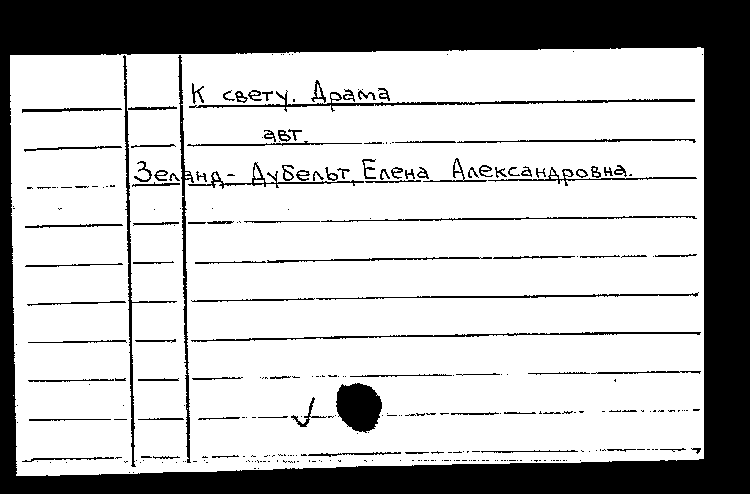 К свету. Драма
авт.
Зеланд- Дубельт, Елена Александровна.